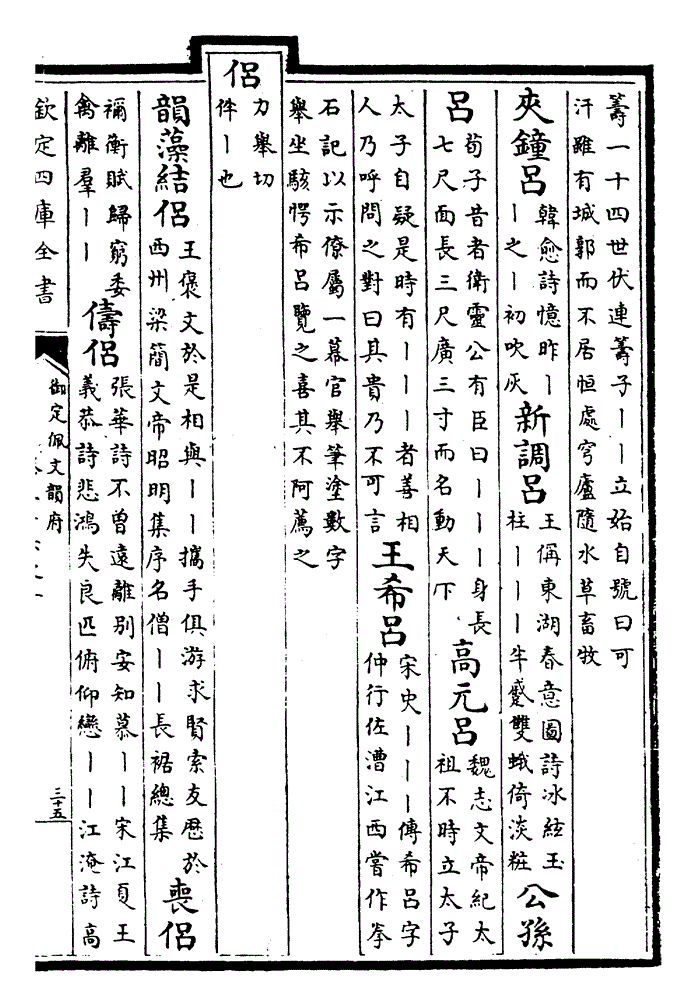 籌一十四世伏連籌子丨丨立始自號曰可
汗雖有城郭而不居恒處穹廬隨水草畜牧
夾鐘呂
韓愈詩憶昨丨
丨之丨初吹灰
新調呂
王偁東湖春意圖詩冰絃玉
柱丨丨丨半蹙雙蛾倚淡粧
公孫
呂
荀子昔者衛靈公有臣曰丨丨丨身長
七尺面長三尺廣三寸而名動天下
高元呂
魏志文帝紀太
祖不時立太子
太子自疑是時有丨丨丨者善相
人乃呼問之對曰其貴乃不可言
王希呂
宋史丨丨丨傳希呂字
仲行佐漕江西嘗作拳
石記以示僚屬一幕官舉筆塗數字
舉坐駭愕希呂覽之喜其不阿薦之
侶
力舉切
伴丨也
韻藻結侶
王褒文於是相與丨丨攜手俱游求賢索友歷於
西州梁簡文帝昭明集序名僧丨丨長裾總集
喪侶
禰衡賦歸窮委
禽離羣丨丨
儔侶
張華詩不曾遠離別安知慕丨丨宋江夏王
義恭詩悲鴻失良匹俯仰戀丨丨江淹詩高
欽定四庫全書
御定佩文韻府
三十五